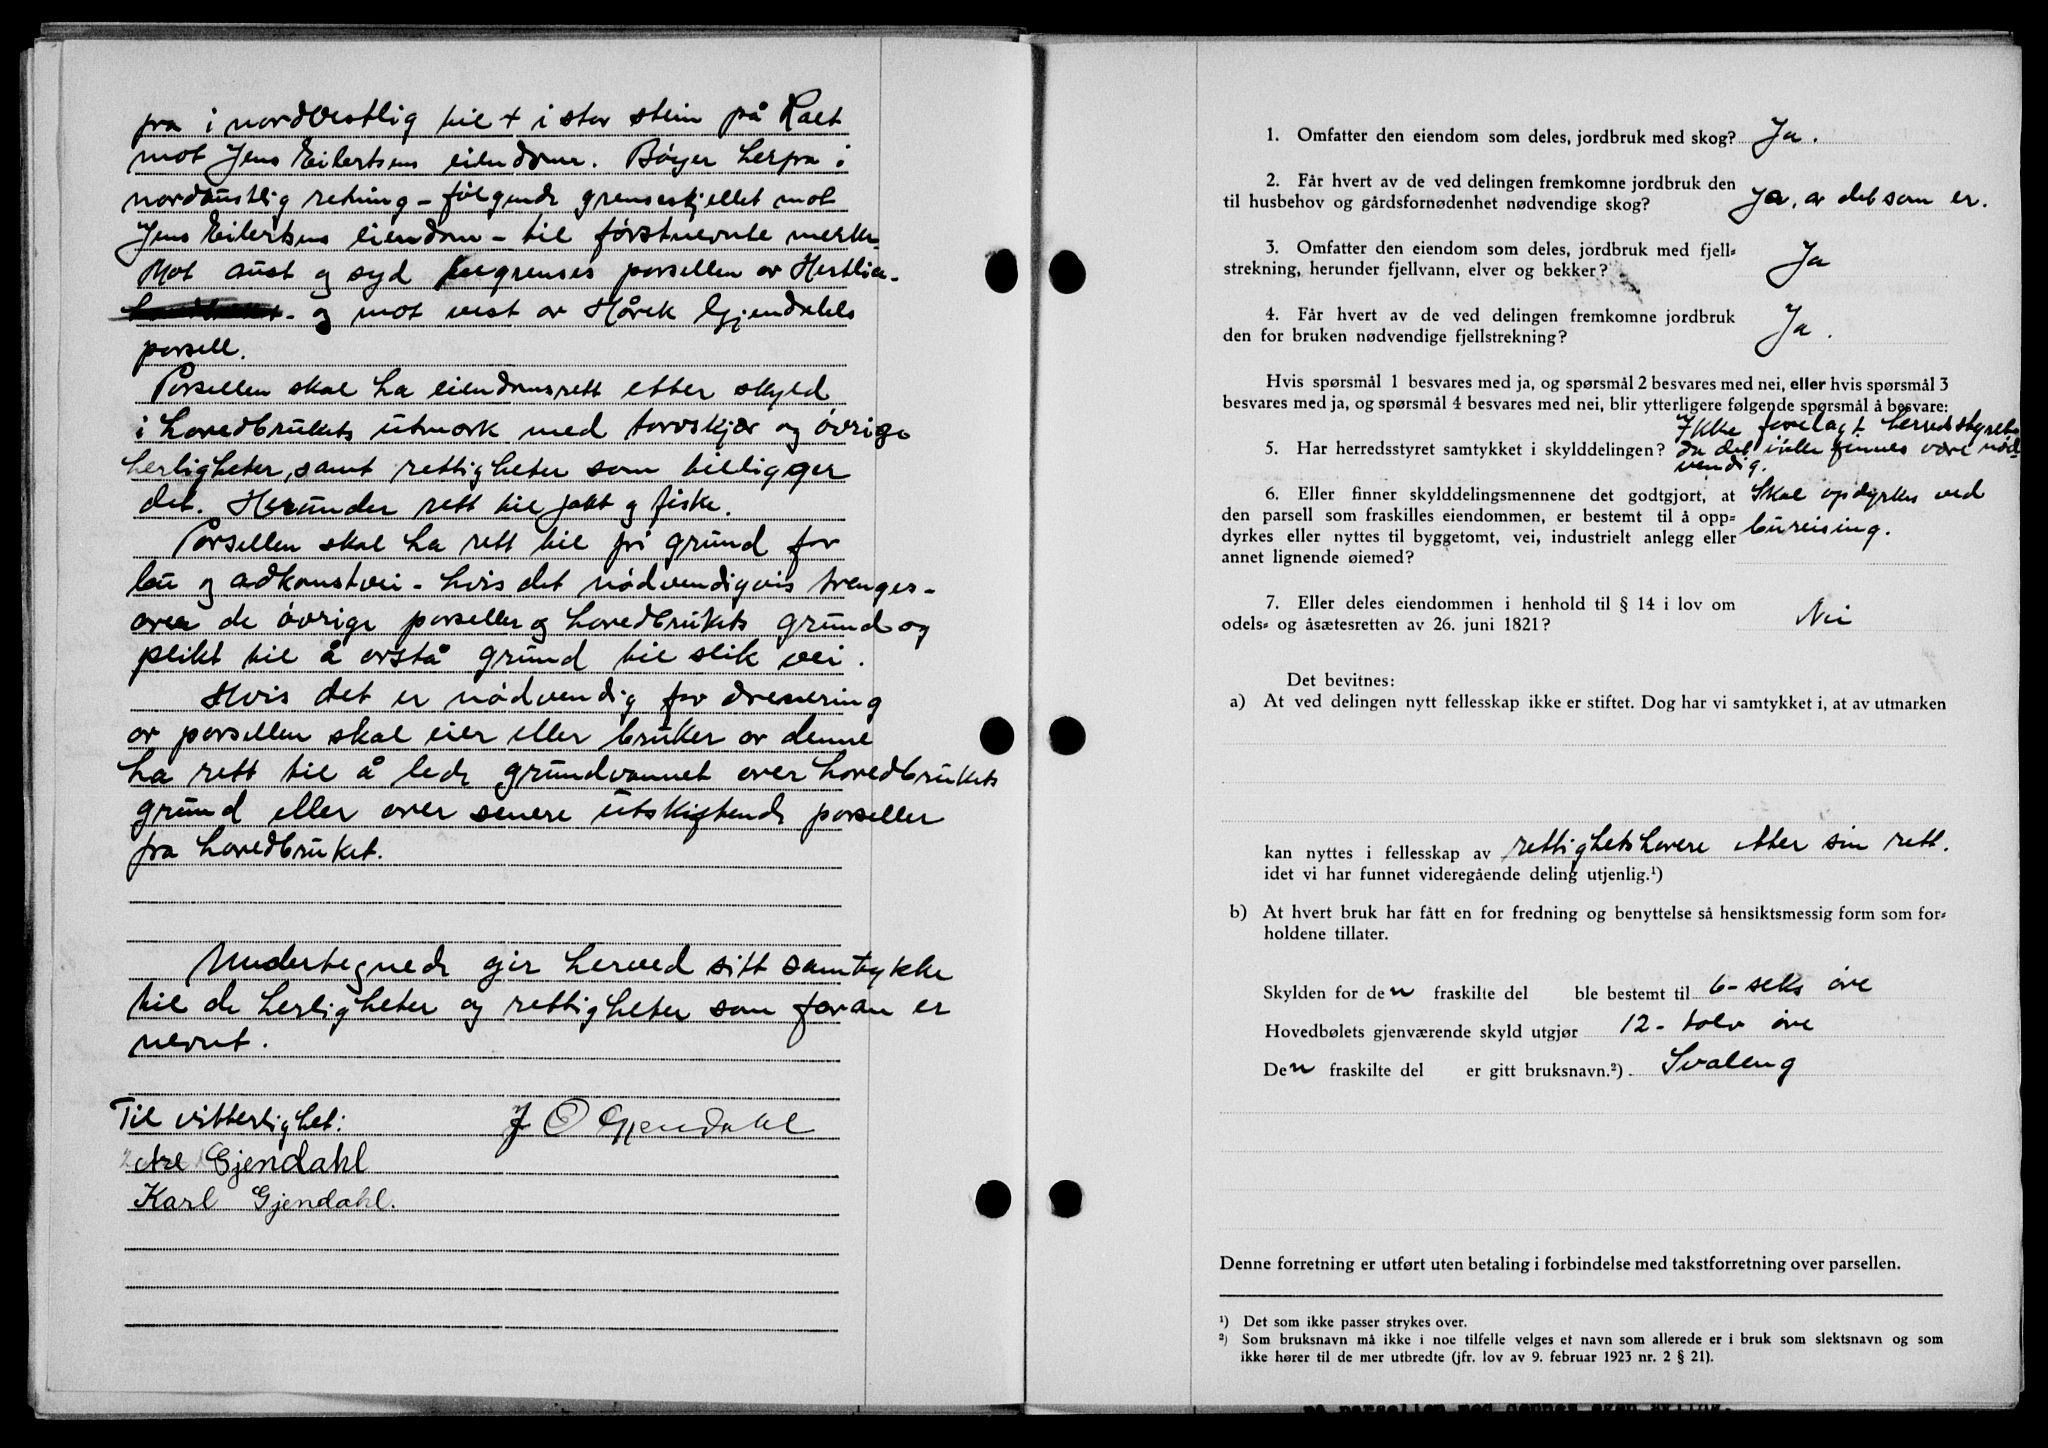 fra i nordvestlig til + i stor stein på Raet
mot Jens Eilertsens eiendom. Bøyer herfra i
nordaustlig retning - følgende grenseskjellet mot
Jens Eilertsens eiendom - til førstnevnte merke.
Mot aust og syd begrenses parsellen av Hestlia-
- og mot vest av Hårek Gjendahls
parsell.
Parsellen skal ha eiendomsrett etter skyld
i hovedbrukets utmark med torvskjær og øvrige
herligheter, samt rettigheter som tilligger
det. Herunder rett til jakt og fiske.
Parsellen skal ha rett til fri grund for
bu og adkomstvei - hvis det nødvendigvis trenges -
over de øvrige parseller og hovedbrukets grund og
plikt til å avstå grund til slik vei.
Hvis det er nødvendig for drenering
av parsellen skal eier eller bruker av denne
ha rett til å lede grundvannet over hovedbrukets
grund eller over senere utskiftende parseller
fra hovedbruket.
Undertegnede gir herved sitt samtykke
til de herligheter og rettigheter som foran er
nevnt.
Til vitterlighet: J O Gjendahl
Are Gjendahl
Karl Gjendahl.
1. Omfatter den eiendom som deles, jordbruk med skog? Ja.
2. Får hvert av de ved delingen fremkomne jordbruk den
til husbehov og gårdsfornødenhet nødvendige skog? Ja, av det som er.
3. Omfatter den eiendom som deles, jordbruk med fjell-
strekning, herunder fjellvann, elver og bekker? Ja
4. Får hvert av de ved delingen fremkomne jordbruk
den for bruken nødvendige fjellstrekning? Ja.
Hvis spørsmål 1 besvares med ja, og spørsmål 2 besvares med nei, eller hvis spørsmål 3
besvares med ja, og spørsmål 4 besvares med nei, blir ytterligere følgende spørsmål å besvare:
Ikke forelagt herredsstyret
5. Har herredsstyret samtykket i skylddelingen? da det ikke finnes være nød-
vendig.
6. Eller finner skylddelingsmennene det godtgjort, at Skal opdyrkes ved
den parsell som fraskilles eiendommen, er bestemt til å opp-
dyrkes eller nyttes til byggetomt, vei, industrielt anlegg eller bureising.
annet lignende øiemed?
7. Eller deles eiendommen i henhold til § 14 i lov om
odels- og åsætesretten av 26. juni 1821? Nei
Det bevitnes:
a) At ved delingen nytt fellesskap ikke er stiftet. Dog har vi samtykket i, at av utmarken
kan nyttes i fellesskap av rettighetshavere etter sin rett.
idet vi har funnet videregående deling utjenlig.¹)
b) At hvert bruk har fått en for fredning og benyttelse så hensiktsmessig form som for-
holdene tillater.
Skylden for den fraskilte del ble bestemt til 6 - seks øre
Hovedbølets gjenværende skyld utgjør 12 - tolv øre
Den fraskilte del er gitt bruksnavn.²) Svaleng
Denne forretning er utført uten betaling i forbindelse med takstforretning over parsellen.
¹) Det som ikke passer strykes over.
²) Som bruksnavn må ikke i noe tilfelle velges et navn som allerede er i bruk som slektsnavn og som
ikke hører til de mer utbredte (jfr. lov av 9. februar 1923 nr. 2 § 21).